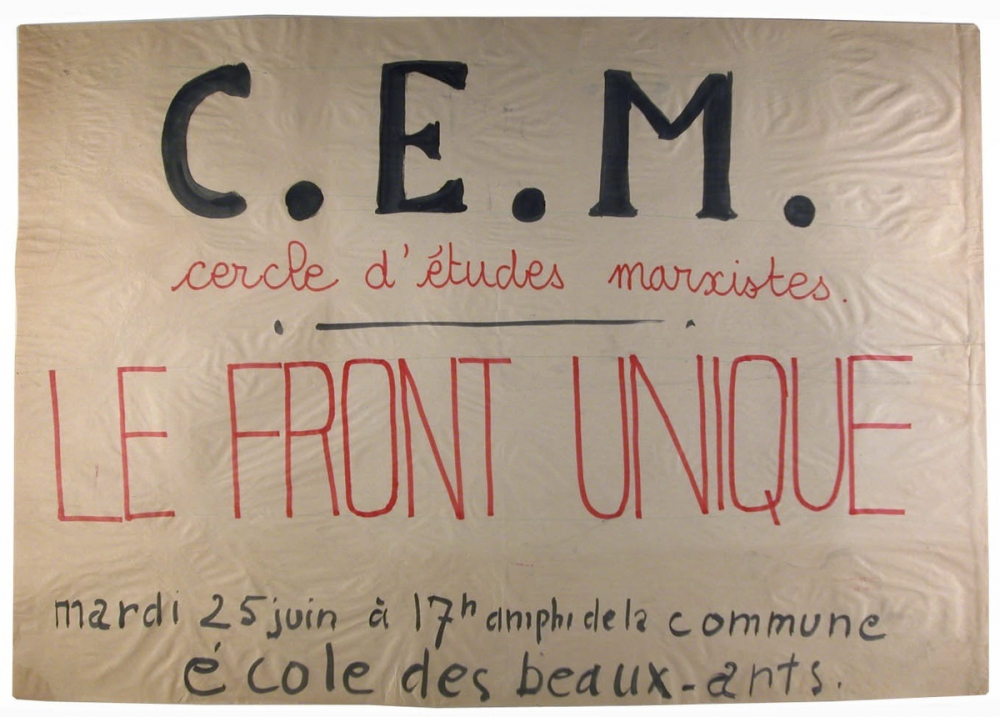 C.E.M.
cercle d'études marxistes.
LE FRONT UNIQUE
mardi 25 juin à 17h amphi de la commune
école des beaux-arts.